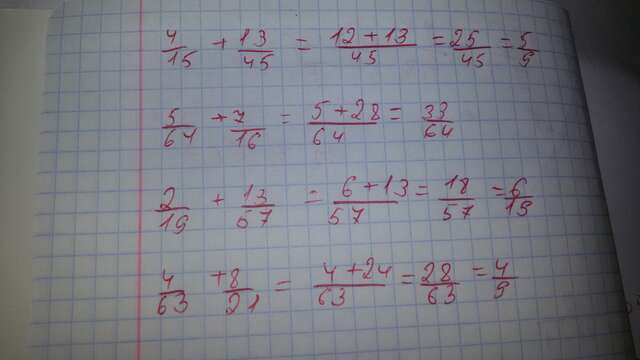 4/15 + 13/45 = 12+13/45 = 25/45 = 5/9
5/64 + 7/16 = 5+28/64 = 33/64
2/19 + 13/57 = 6+13/57 = 18/57 = 6/19
4/63 + 8/21 = 4+24/63 = 28/63 = 4/9